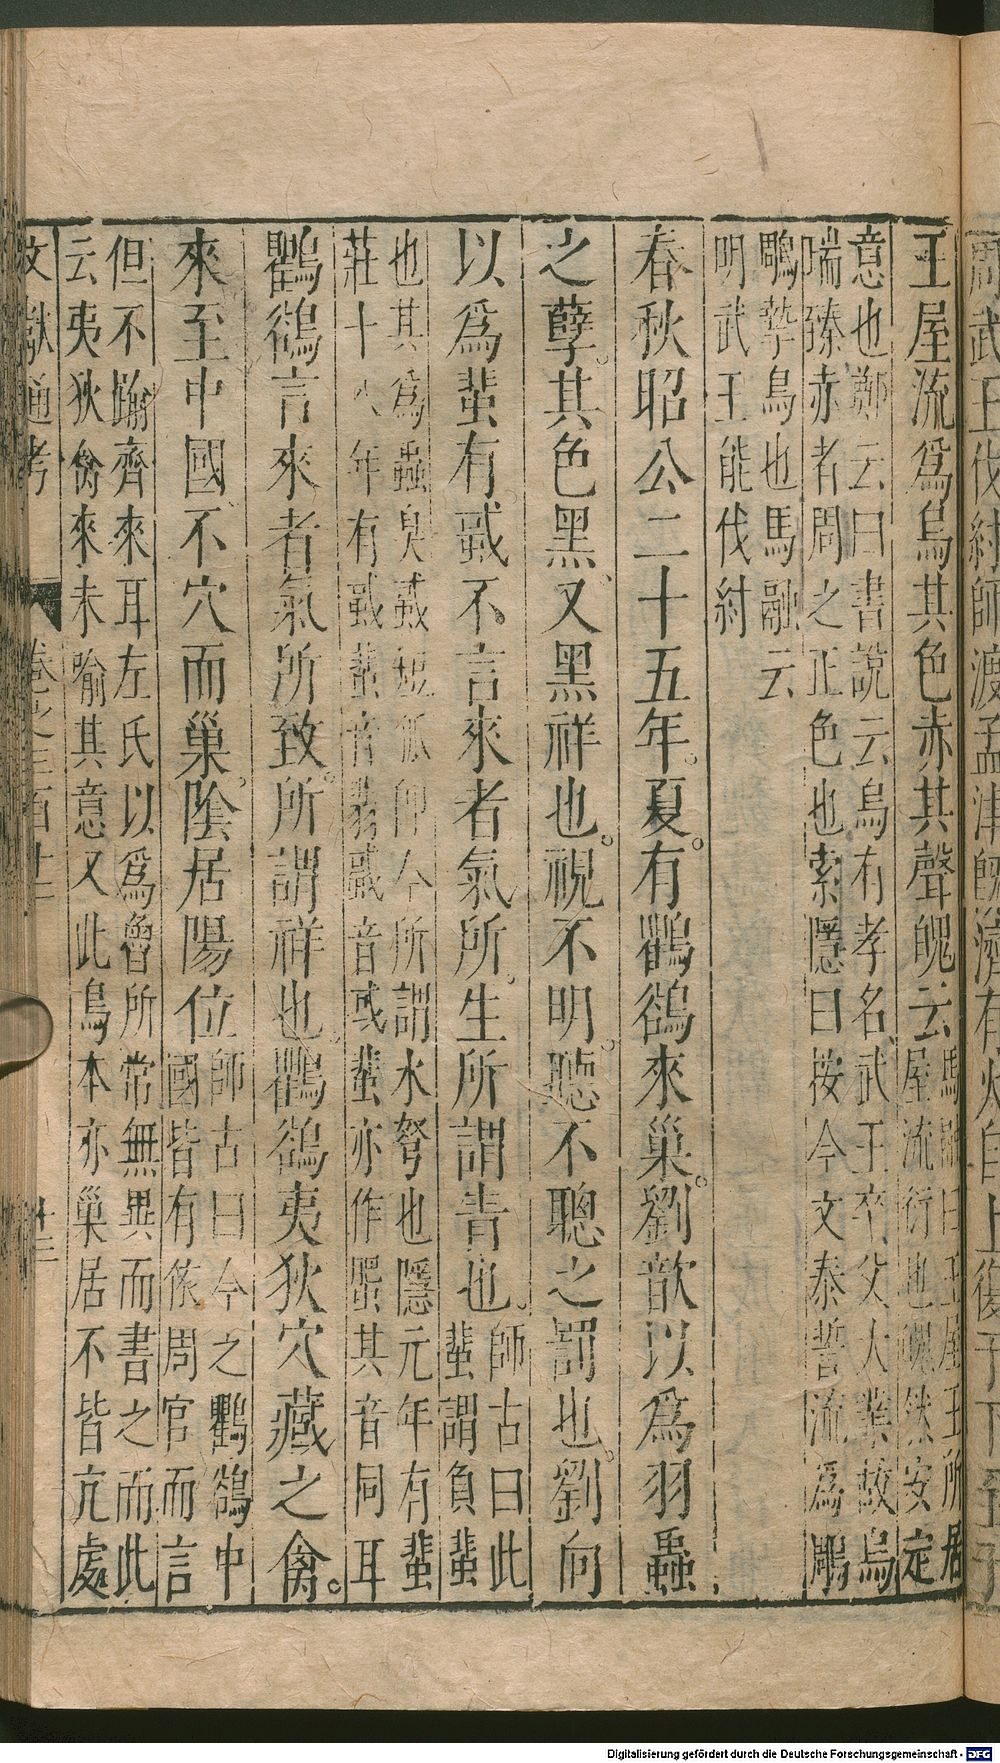 王屋流爲烏其色赤其聲魄云馬融曰王屋王所居
屋流行也魄然安定
意也鄭云曰書說云烏有孝名武王卒父大業故烏
瑞臻赤者周之正色也索隱曰按今文泰誓流爲鵰
鵰摯鳥也馬融云
明武王能伐紂
春秋昭公二十五年夏有鸜鵒來巢劉歆以爲羽蟲
之孽其色黑又黑祥也視不明聽不聰之罰也劉向
以爲蜚有蜮不言來者氣所生所謂眚也師古曰此
蜚謂負蜚
也其爲蟲臭蜮短狐卽今所謂水弩也隱元年有蜚
莊十八年有蜮蜚音翡蜮音或蜚亦作蜰其音同耳
鸜鵒言來者氣所致所謂祥也鸜鵒夷狄穴藏之禽
來至中國不穴而巢陰居陽位師古曰今之鸜鵒中
國皆有依周官而言
但不踰齊來耳左氏以爲魯所常無異而書之而此
云夷狄禽來未喻其意又此鳥本亦巢居不皆亢處
文獻通考
卷之三百十二
十三
Digitalisierung gefördert durch die Deutsche Forschungsgemeinschaft - DFG